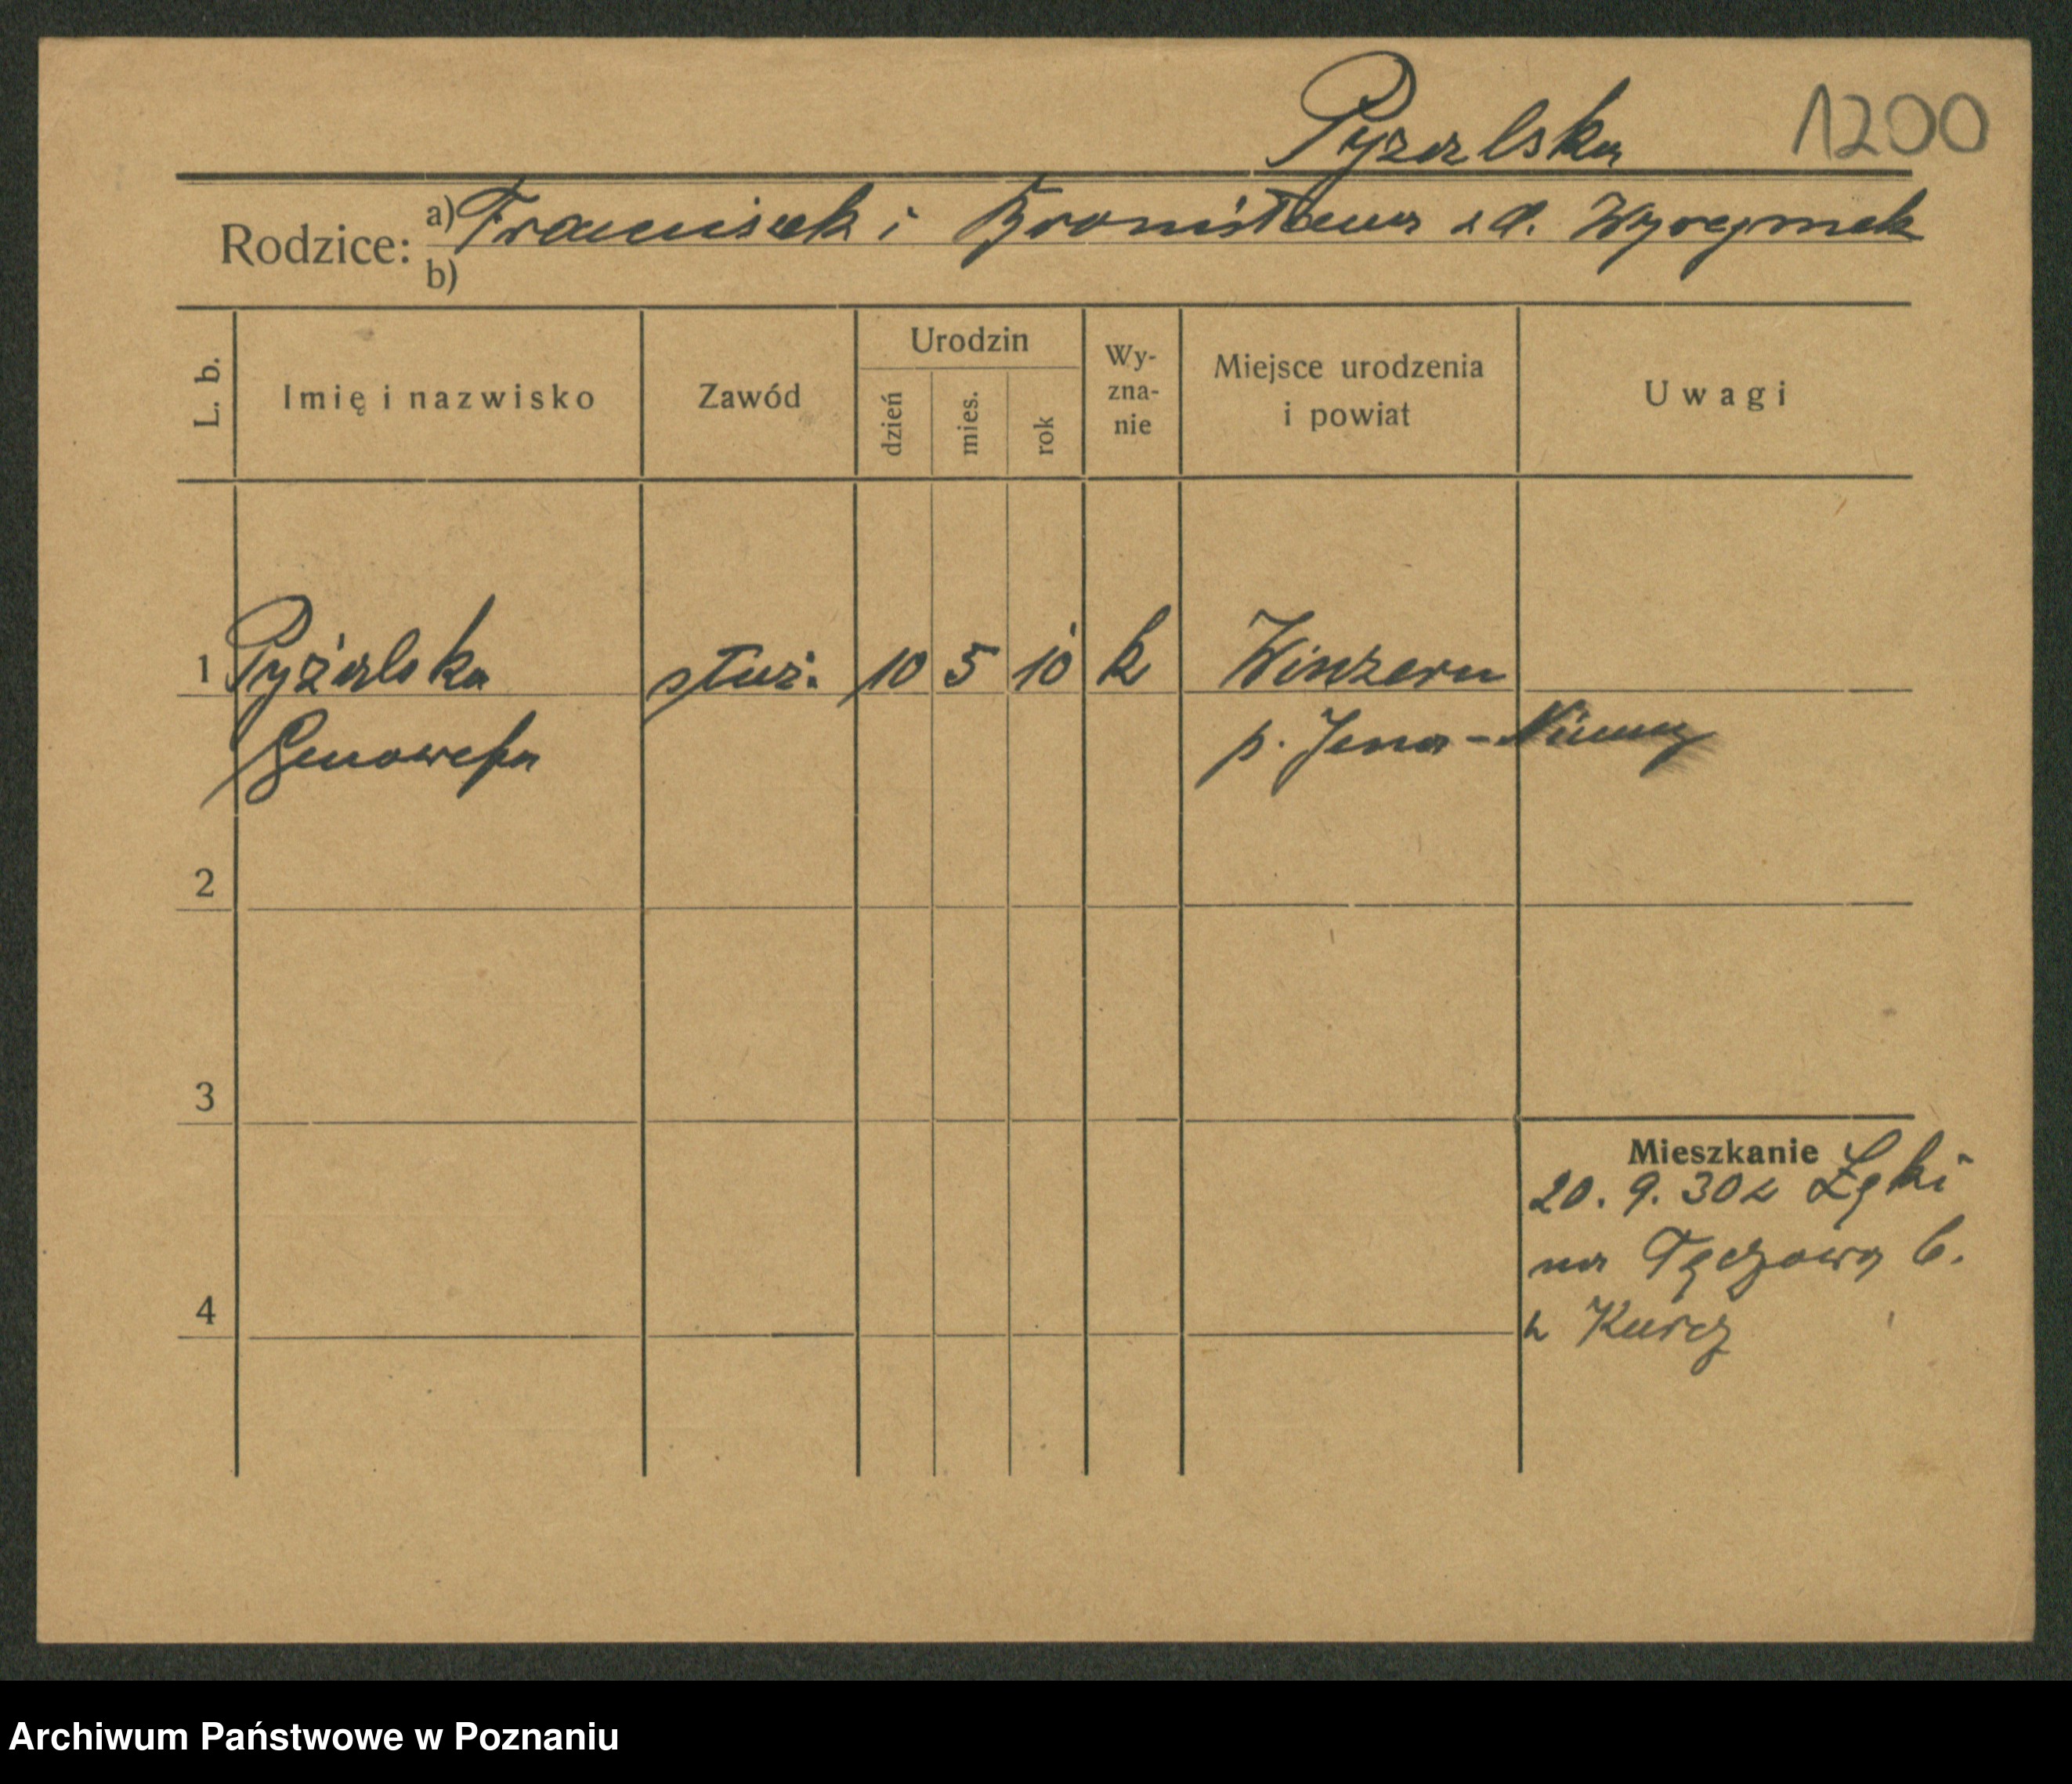 Pyzalska 1200
Rodzice: a) Franciszek i Bronisława z d. Wyrgmek
b)
L. b. Imię i nazwisko Zawód Urodzin dzień mies. rok Wy-zna-nie Miejsce urodzenia i powiat Uwagi
1 Pyżalska służ. 10 5 10 k Winzern
Genowefa p. Jena - Niemcy
2
3
Mieszkanie
20. 9. 30 z Łęki
na Tęczową 6.
4
u Kurcz
Archiwum Państwowe w Poznaniu